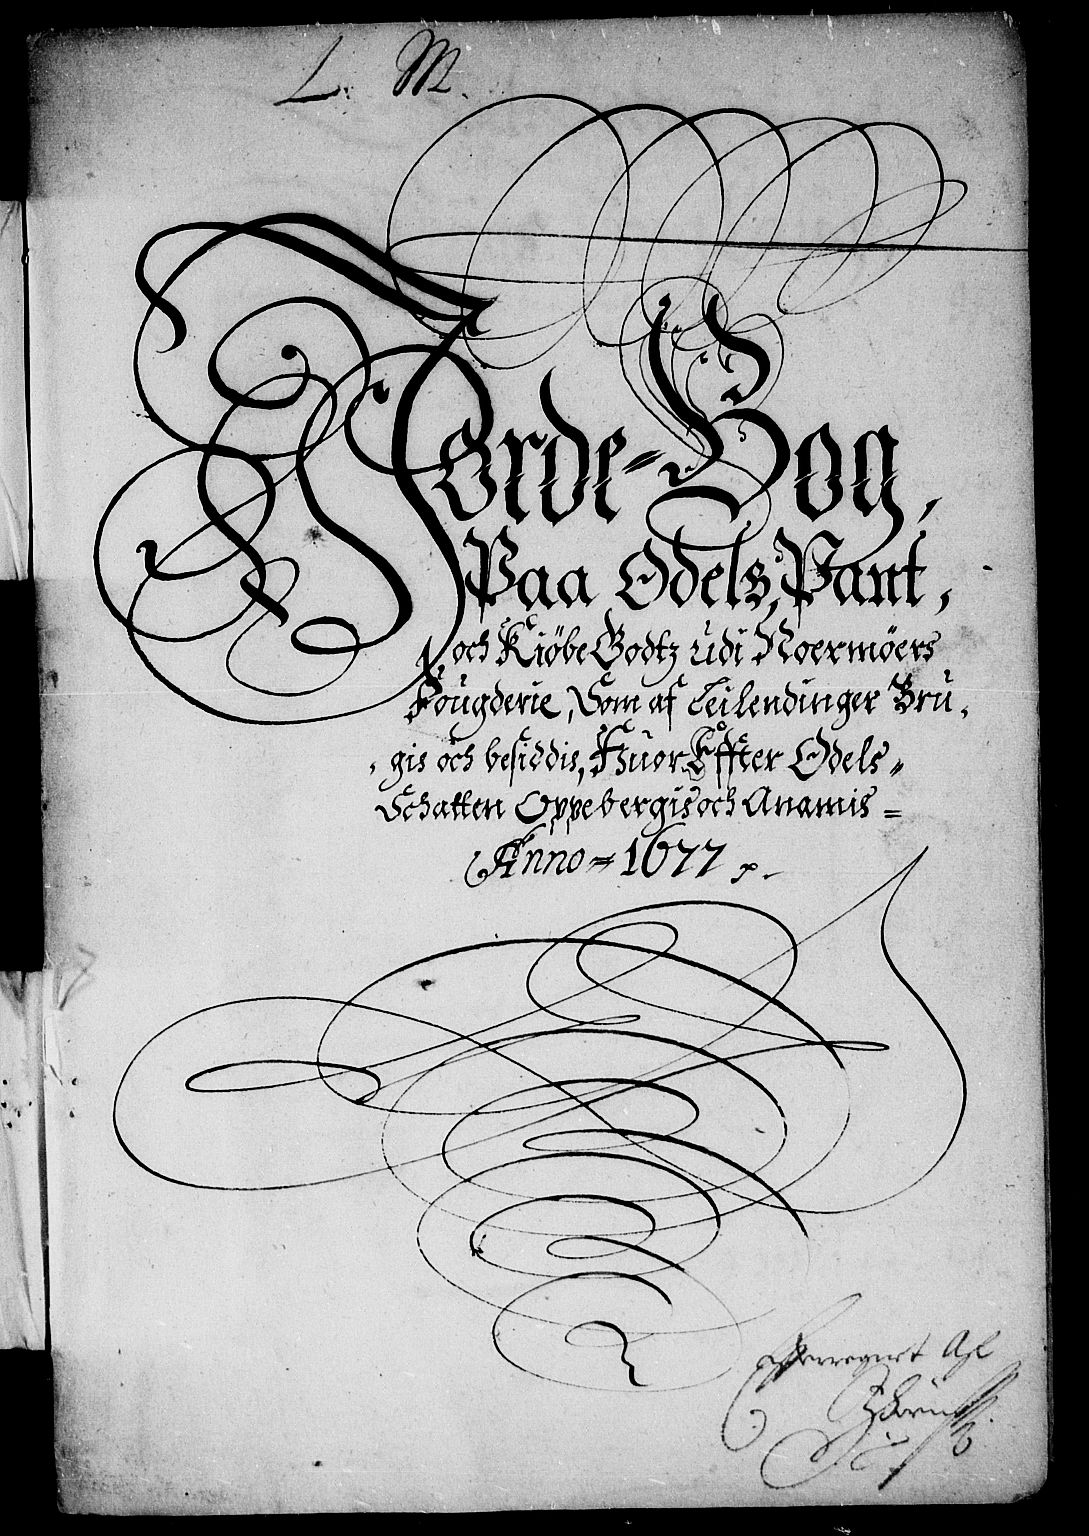 L. M.
Jorde-Bog,
Paa Odels, Pant,
och Kiöbe Godtz udi Noermöers
Fougderie, Som af Leilendinger Bru,
, gis och besiddis, Huor Effter Odels=
Schatten Oppebergis och Anamis =
Anno = 1677
Af